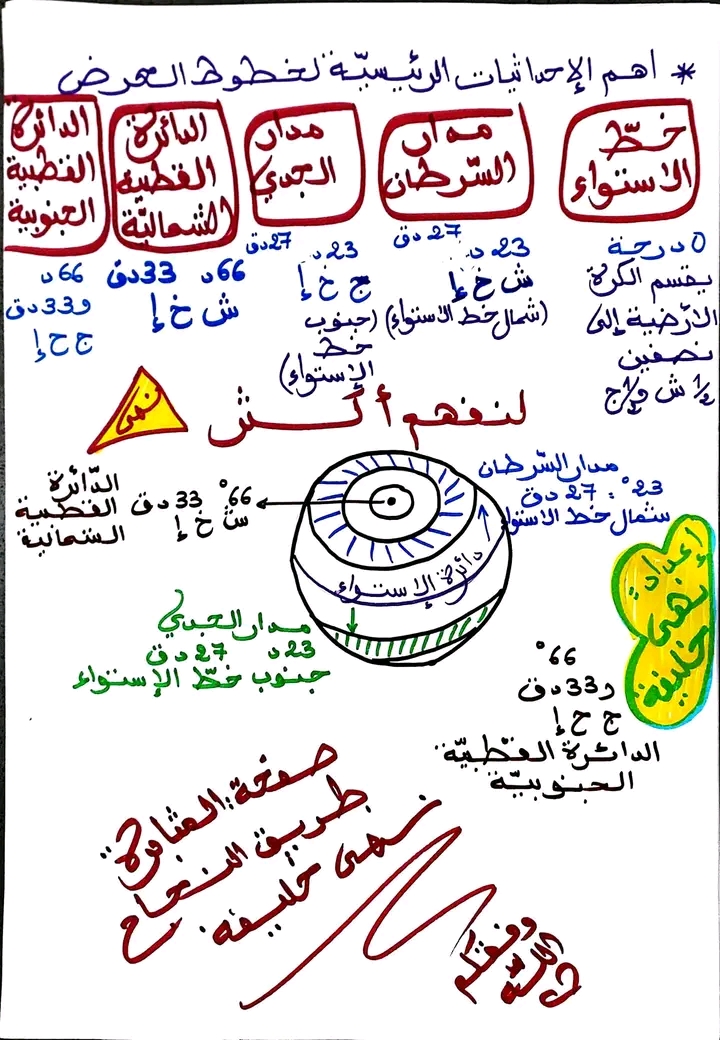 * اهم الإحداثيات الرئيسيّة لخطوط العرض
خطّ
الاستواء
مدار
السّرطان
مدار
الجدي
الدائرة
القطبية
الشماليّة
الدائرة
القطبية
الجنوبية
0 درجة
يقسم الكرة
الأرضية إلى
نصفين
½ ش و½ ج
23 د 27 دق
ش خ إ
(شمال خط الاستواء)
23 د 27 دق
ج خ إ
(جنوب
خط
الإستواء)
66 د 33 دق
ش خ إ
66 د
و33 دق
ج خ إ
لنفهم أكثر
نهى
مدار السّرطان
23° : 27 دق
شمال خط الاستواء
66° 33 دق
ش خ إ
الدّائرة
القطبية
الشمالية
دائرة الإستواء
مدار الجدي
23 د 27 دق
جنوب خطّ الإستواء
إعداد:
نهى
خليفة
66°
و33 دق
ج خ إ
الدائرة القطبيّة
الجنوبيّة
صفحة المثابرة:
طريق النجاح
نهى خليفة
وفقكم
الله